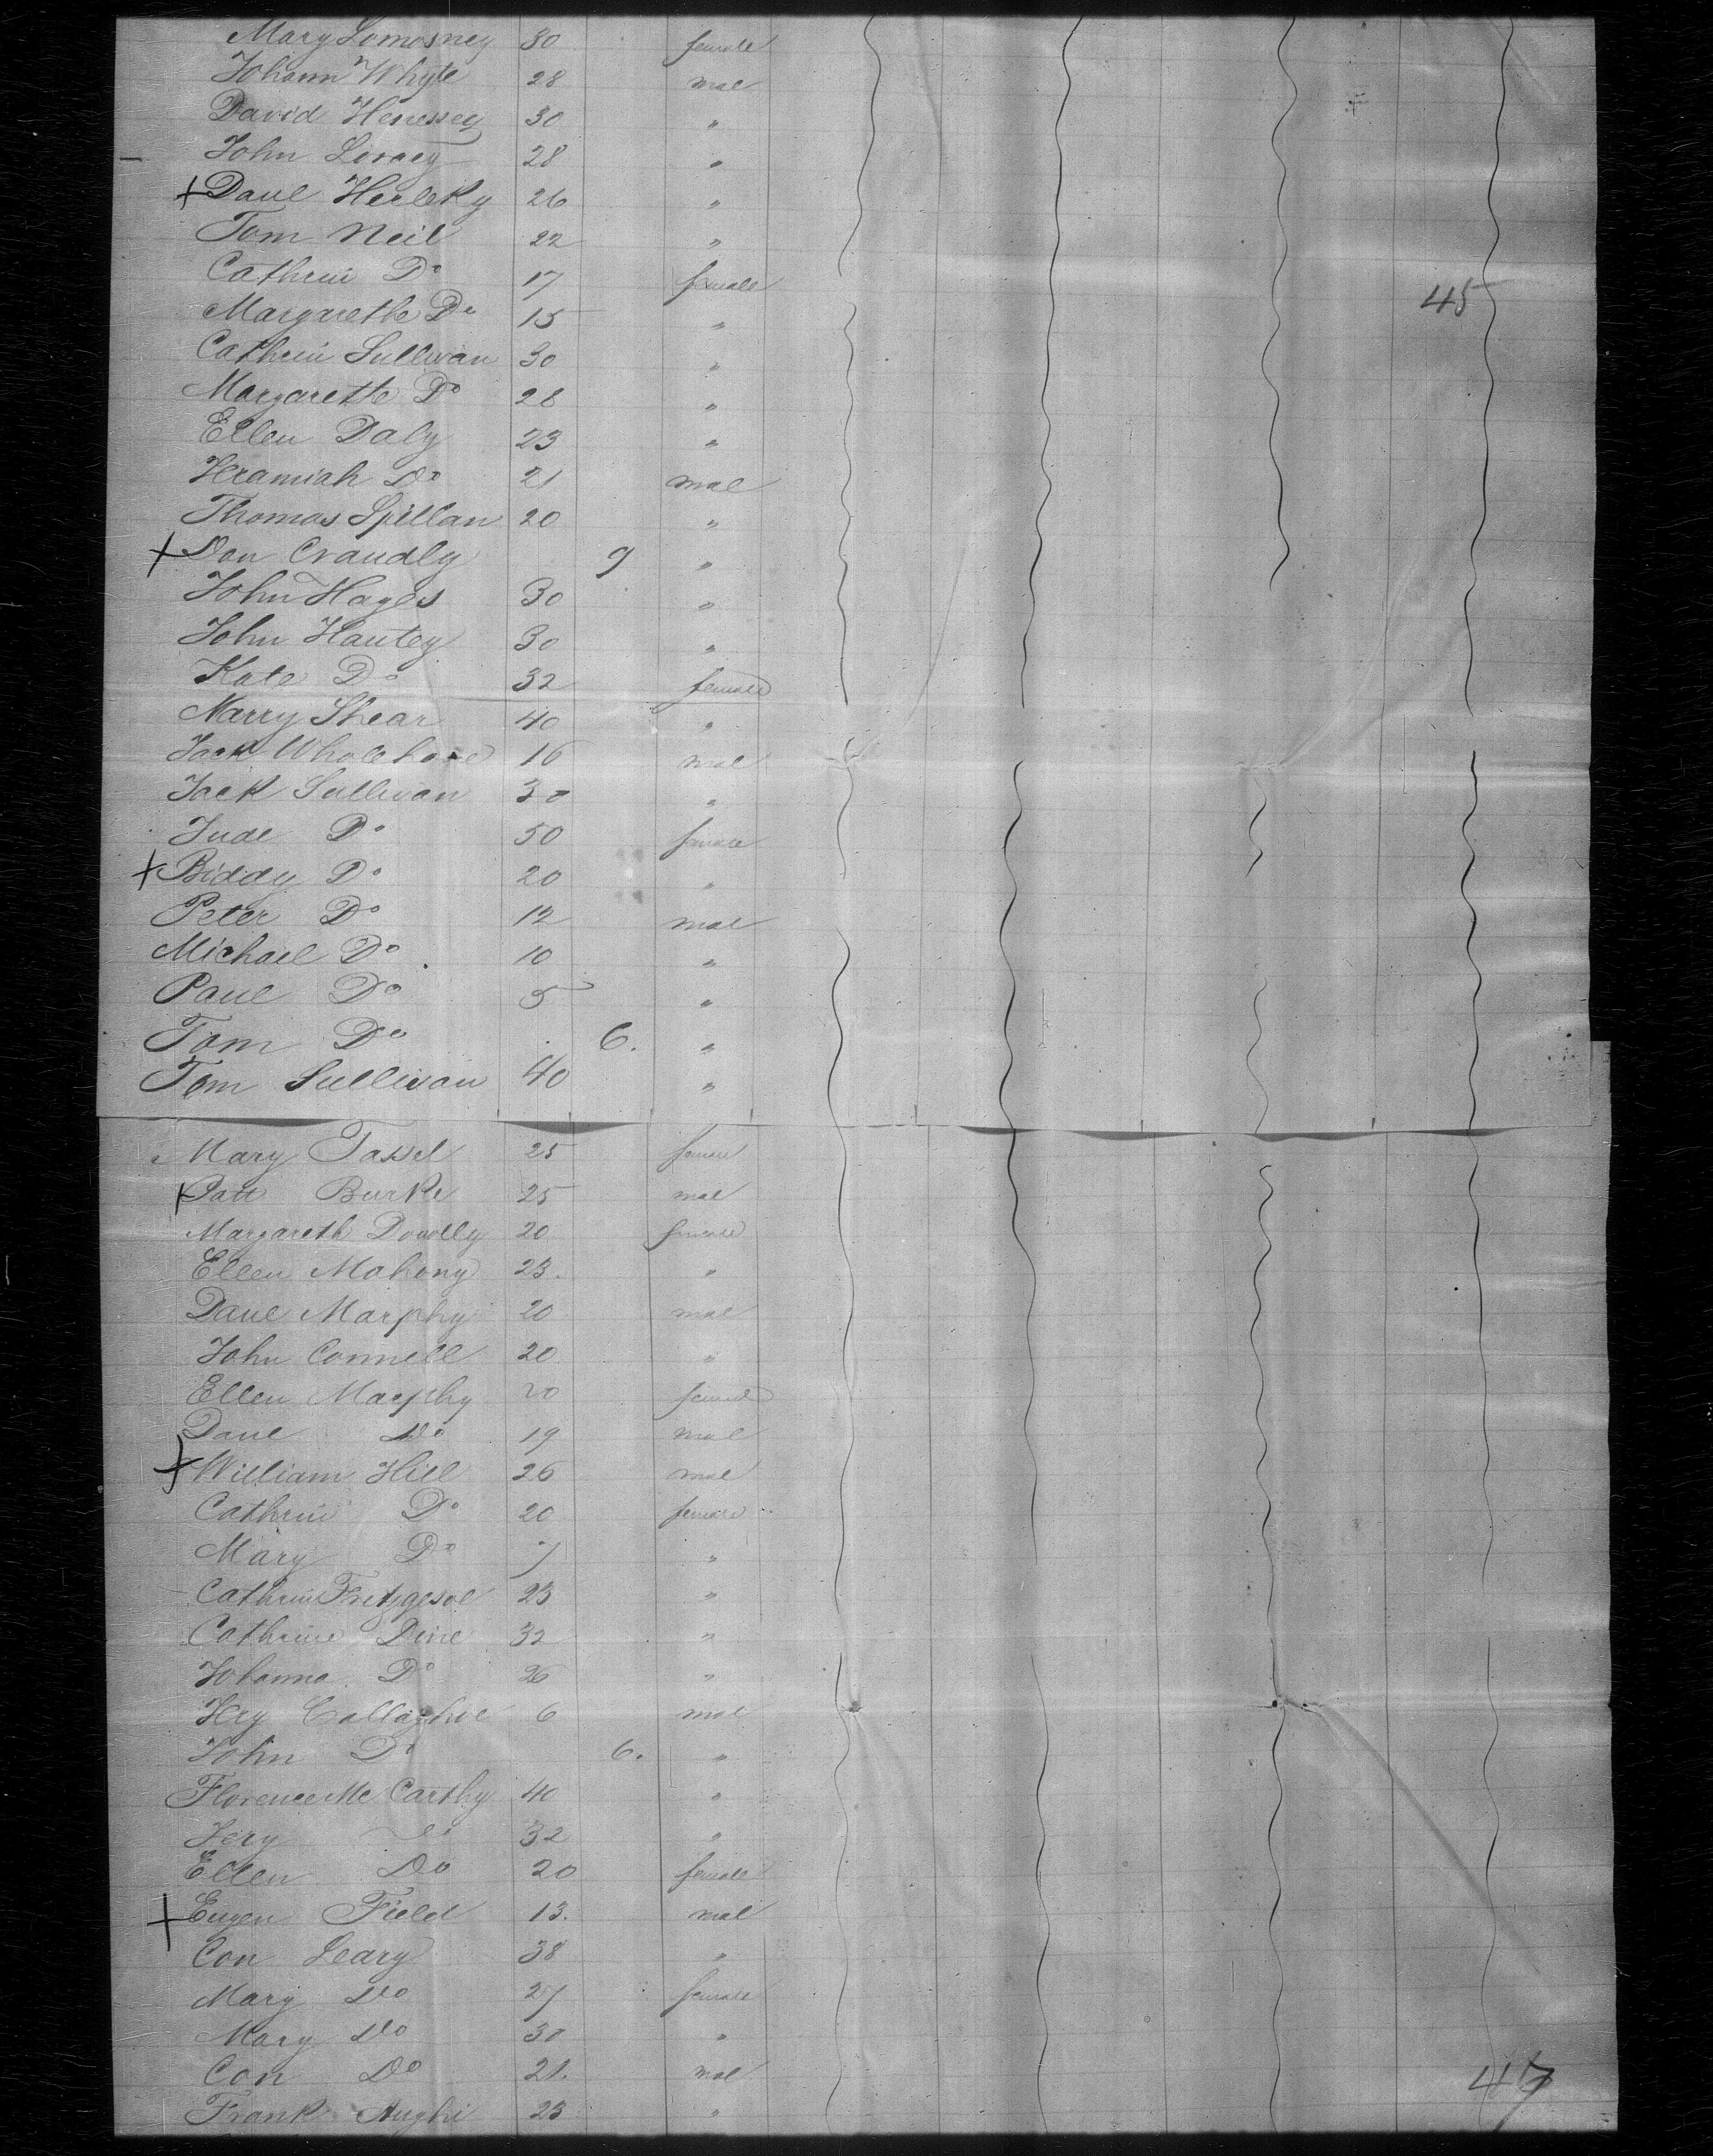 Mary Lomosney 30 female
Johann Whyte 28 mal
David Henessey 30 "
John 28 "
+ Daul Herleky 26 "
Tom Neil 22 "
Cathrin Do 17 female
45
Margarethe Do 15 "
Cathrin Sullivan 30 "
Margarette Do 28 "
Ellen Daly 23 "
Jeramiah Do 21 mal
Thomas Spillan 20 "
+ Dan Craudly 9 "
John Hayes 30 "
John Hautey 30 "
Kate Do 32 female
Marry Shear 40 "
Jack 16 mal
Jack Sullivan 30 "
Jude Do 50 female
+ Biddy Do 20 "
Peter Do 12 mal
Michael Do 10 "
Paul Do 5 "
Tom Do 6. "
Tom Sullivan 40 "
Mary Tassel 25 female
+ Patt Burke 25 mal
Margareth Dowlly 20 female
Ellen Mahony 23. "
Daul Marphy 20 mal
John Connell 20 "
Ellen Marphy 20 female
Daul Do 19 mal
+ William Hill 26 mal
Cathrin Do 20 female
Mary Do 7 "
Cathrin 23 "
Cathrine Dine 32 "
Johanna Do 26 "
6 mal
John Do 6. "
Florence Mc Carthy 40 "
Jery Do 32 "
Ellen Do 20 female
+ Eugen Field 13. mal
Con Leary 38 "
Mary Do 27 female
Mary Do 30 "
Con Do 21. mal
Frank Aughi 23 "